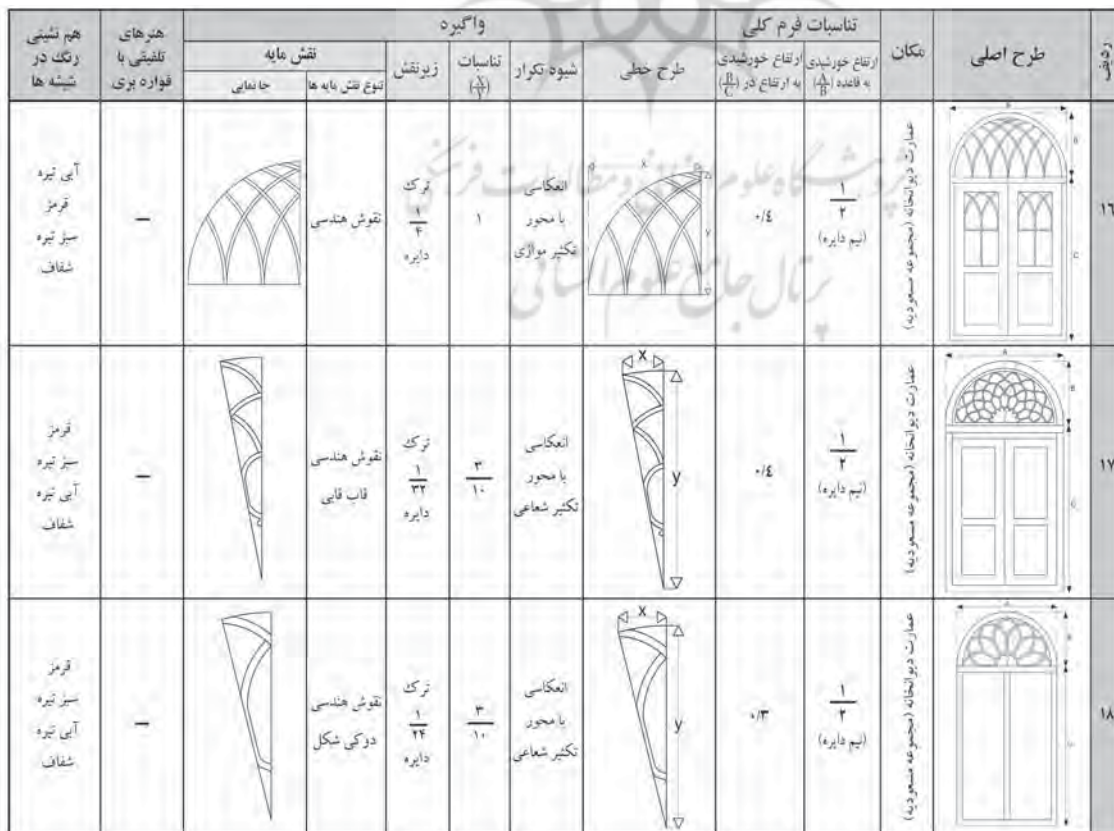 ردیف
طرح اصلی
مکان
تناسبات فرم کلی
ارتفاع خورشیدی به قاعده (A/B)
ارتفاع خورشیدی به ارتفاع در (B/C)
واگیره
طرح خطی
شیوه تکرار
تناسبات (X/Y)
زیرنقش
نقش مایه
تنوع نقش مایه ها
جانمایی
هنرهای
تلفیقی با
قواره بری
هم نشینی
رنگ در
شیشه ها
۱۶
عمارت دیوانخانه (مجموعه مسعودیه)
۱/۲
(نیم دایره)
۰/٤
انعکاسی
با محور
تکثیر موازی
۱
ترک
۱/۴
دایره
نقوش هندسی
—
آبی تیره
قرمز
سبز تیره
شفاف
۱۷
عمارت دیوانخانه (مجموعه مسعودیه)
۱/۲
(نیم دایره)
۰/٤
X
y
انعکاسی
با محور
تکثیر شعاعی
۳/۱۰
ترک
۱/۳۲
دایره
نقوش هندسی
قاب قابی
—
قرمز
سبز تیره
آبی تیره
شفاف
۱۸
عمارت دیوانخانه (مجموعه مسعودیه)
۱/۲
(نیم دایره)
۰/۳
X
y
انعکاسی
با محور
تکثیر شعاعی
۳/۱۰
ترک
۱/۲۴
دایره
نقوش هندسی
دوکی شکل
—
قرمز
سبز تیره
آبی تیره
شفاف
پژوهشگاه علوم انسانی و مطالعات فرهنگی
پرتال جامع علوم انسانی